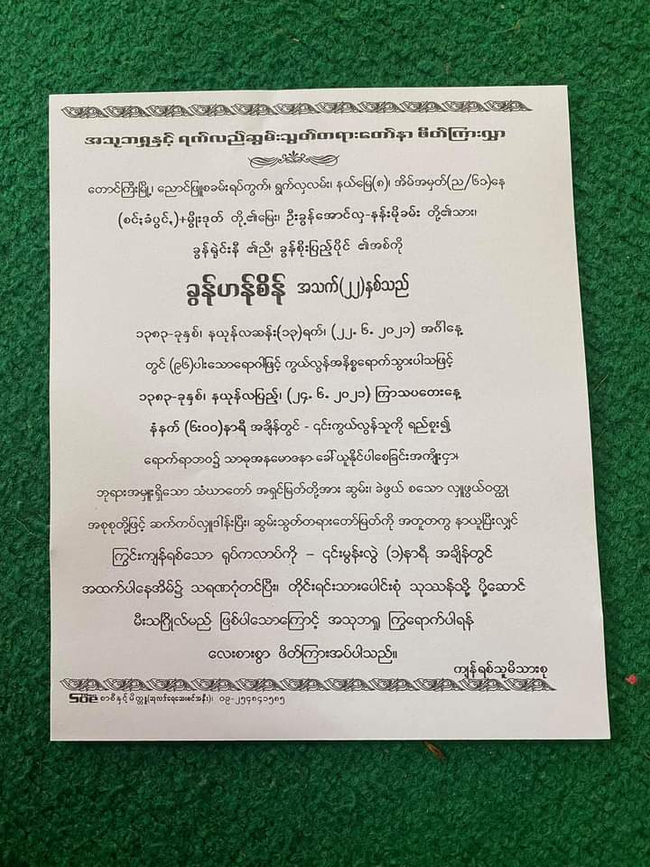 အသုဘရှုနှင့် ရက်လည်ဆွမ်းသွတ်တရားတော်နာ ဖိတ်ကြားလွှာ
တောင်ကြီးမြို့၊ ညောင်ဖြူစခန်းရပ်ကွက်၊ ရွက်လှလမ်း၊ နယ်မြေ(၈)၊ အိမ်အမှတ်(ည/၆၁)နေ
တို့၏မြေး၊ ဦးခွန်အောင်လှ-နန်းမိုခမ်း တို့၏သား၊
ခွန်ရဲရင်းနီ ၏ညီ၊ ခွန်စိုးပြည့်ပိုင် ၏အစ်ကို
ခွန်ဟန်စိန် အသက်(၂၂)နှစ်သည်
၁၃၈၃-ခုနှစ်၊ နယုန်လဆန်း(၁၃)ရက်၊ (၂၂. ၆. ၂၀၂၁) အင်္ဂါနေ့
တွင် (၉၆)ပါးသောရောဂါဖြင့် ကွယ်လွန်အနိစ္စရောက်သွားပါသဖြင့်
၁၃၈၃-ခုနှစ်၊ နယုန်လပြည့်၊ (၂၄. ၆. ၂၀၂၁) ကြာသပတေးနေ့
နံနက် (၆:၀၀)နာရီ အချိန်တွင် - ၎င်းကွယ်လွန်သူကို ရည်စူး၍
ရောက်ရာဘဝ၌ သာဓုအနုမောဒနာ ခေါ်ယူနိုင်ပါစေခြင်းအကျိုးငှာ၊
ဘုရားအမှူးရှိသော သံဃာတော် အရှင်မြတ်တို့အား ဆွမ်း၊ ခဲဖွယ် စသော လှူဖွယ်ဝတ္ထု
အစုစုတို့ဖြင့် ဆက်ကပ်လှူဒါန်းပြီး၊ ဆွမ်းသွတ်တရားတော်မြတ်ကို အတူတကွ နာယူပြီးလျှင်
ကြွင်းကျန်ရစ်သော ရုပ်ကလာပ်ကို – ၎င်းမွန်းလွဲ (၁)နာရီ အချိန်တွင်
အထက်ပါနေအိမ်၌ သရဏဂုံတင်ပြီး၊ တိုင်းရင်းသားပေါင်းစုံ သုဿန်သို့ ပို့ဆောင်
မီးသင်္ဂြိုဟ်မည် ဖြစ်ပါသောကြောင့် အသုဘရှု ကြွရောက်ပါရန်
လေးစားစွာ ဖိတ်ကြားအပ်ပါသည်။
ကျန်ရစ်သူမိသားစု
စာစီနှင့်မိတ္တူ ၊ ၀၉-၂၅၄၈၄၁၅၈၅